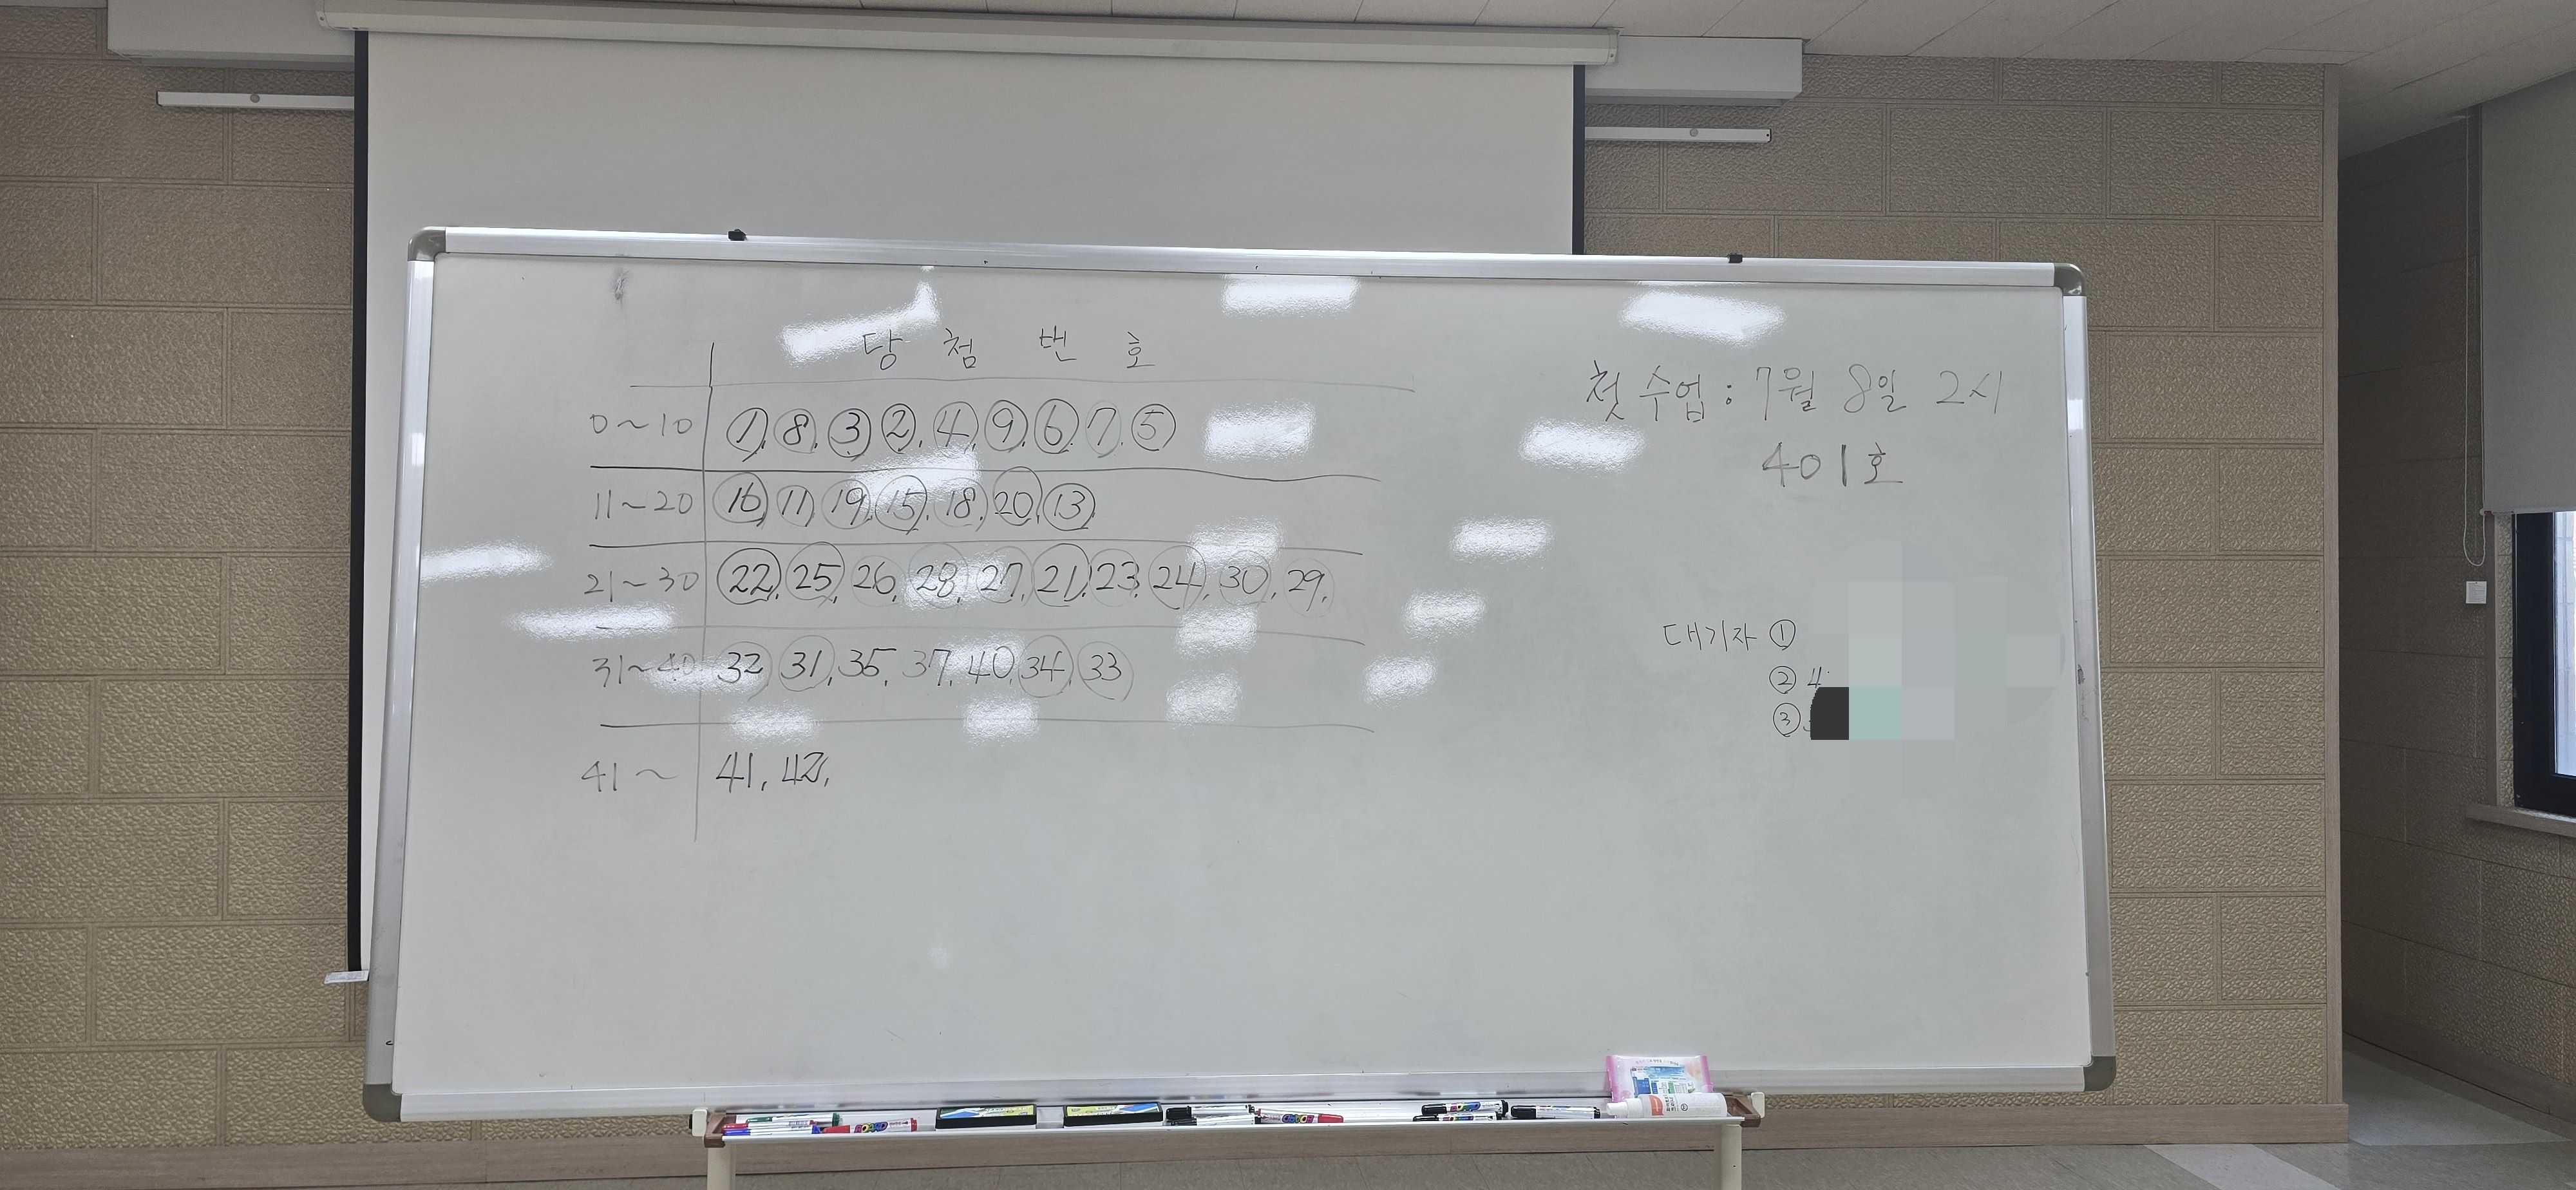 당 첨 번 호
0~10 ①, ⑧, ③, ②, ④, ⑨, ⑥, ⑦, ⑤
11~20 ⑯, ⑪, ⑲, ⑮, ⑱, ⑳, ⑬
21~30 ㉒, ㉕, ㉖, ㉘, ㉗, ㉑, ㉓, ㉔, ㉚, ㉙,
31~40 ㉜, ㉛, 35, 37, 40, ㉞, ㉝
41~ 41, 42,
첫 수업 : 7월 8일 2시
401호
대기자 ①
② 4
③